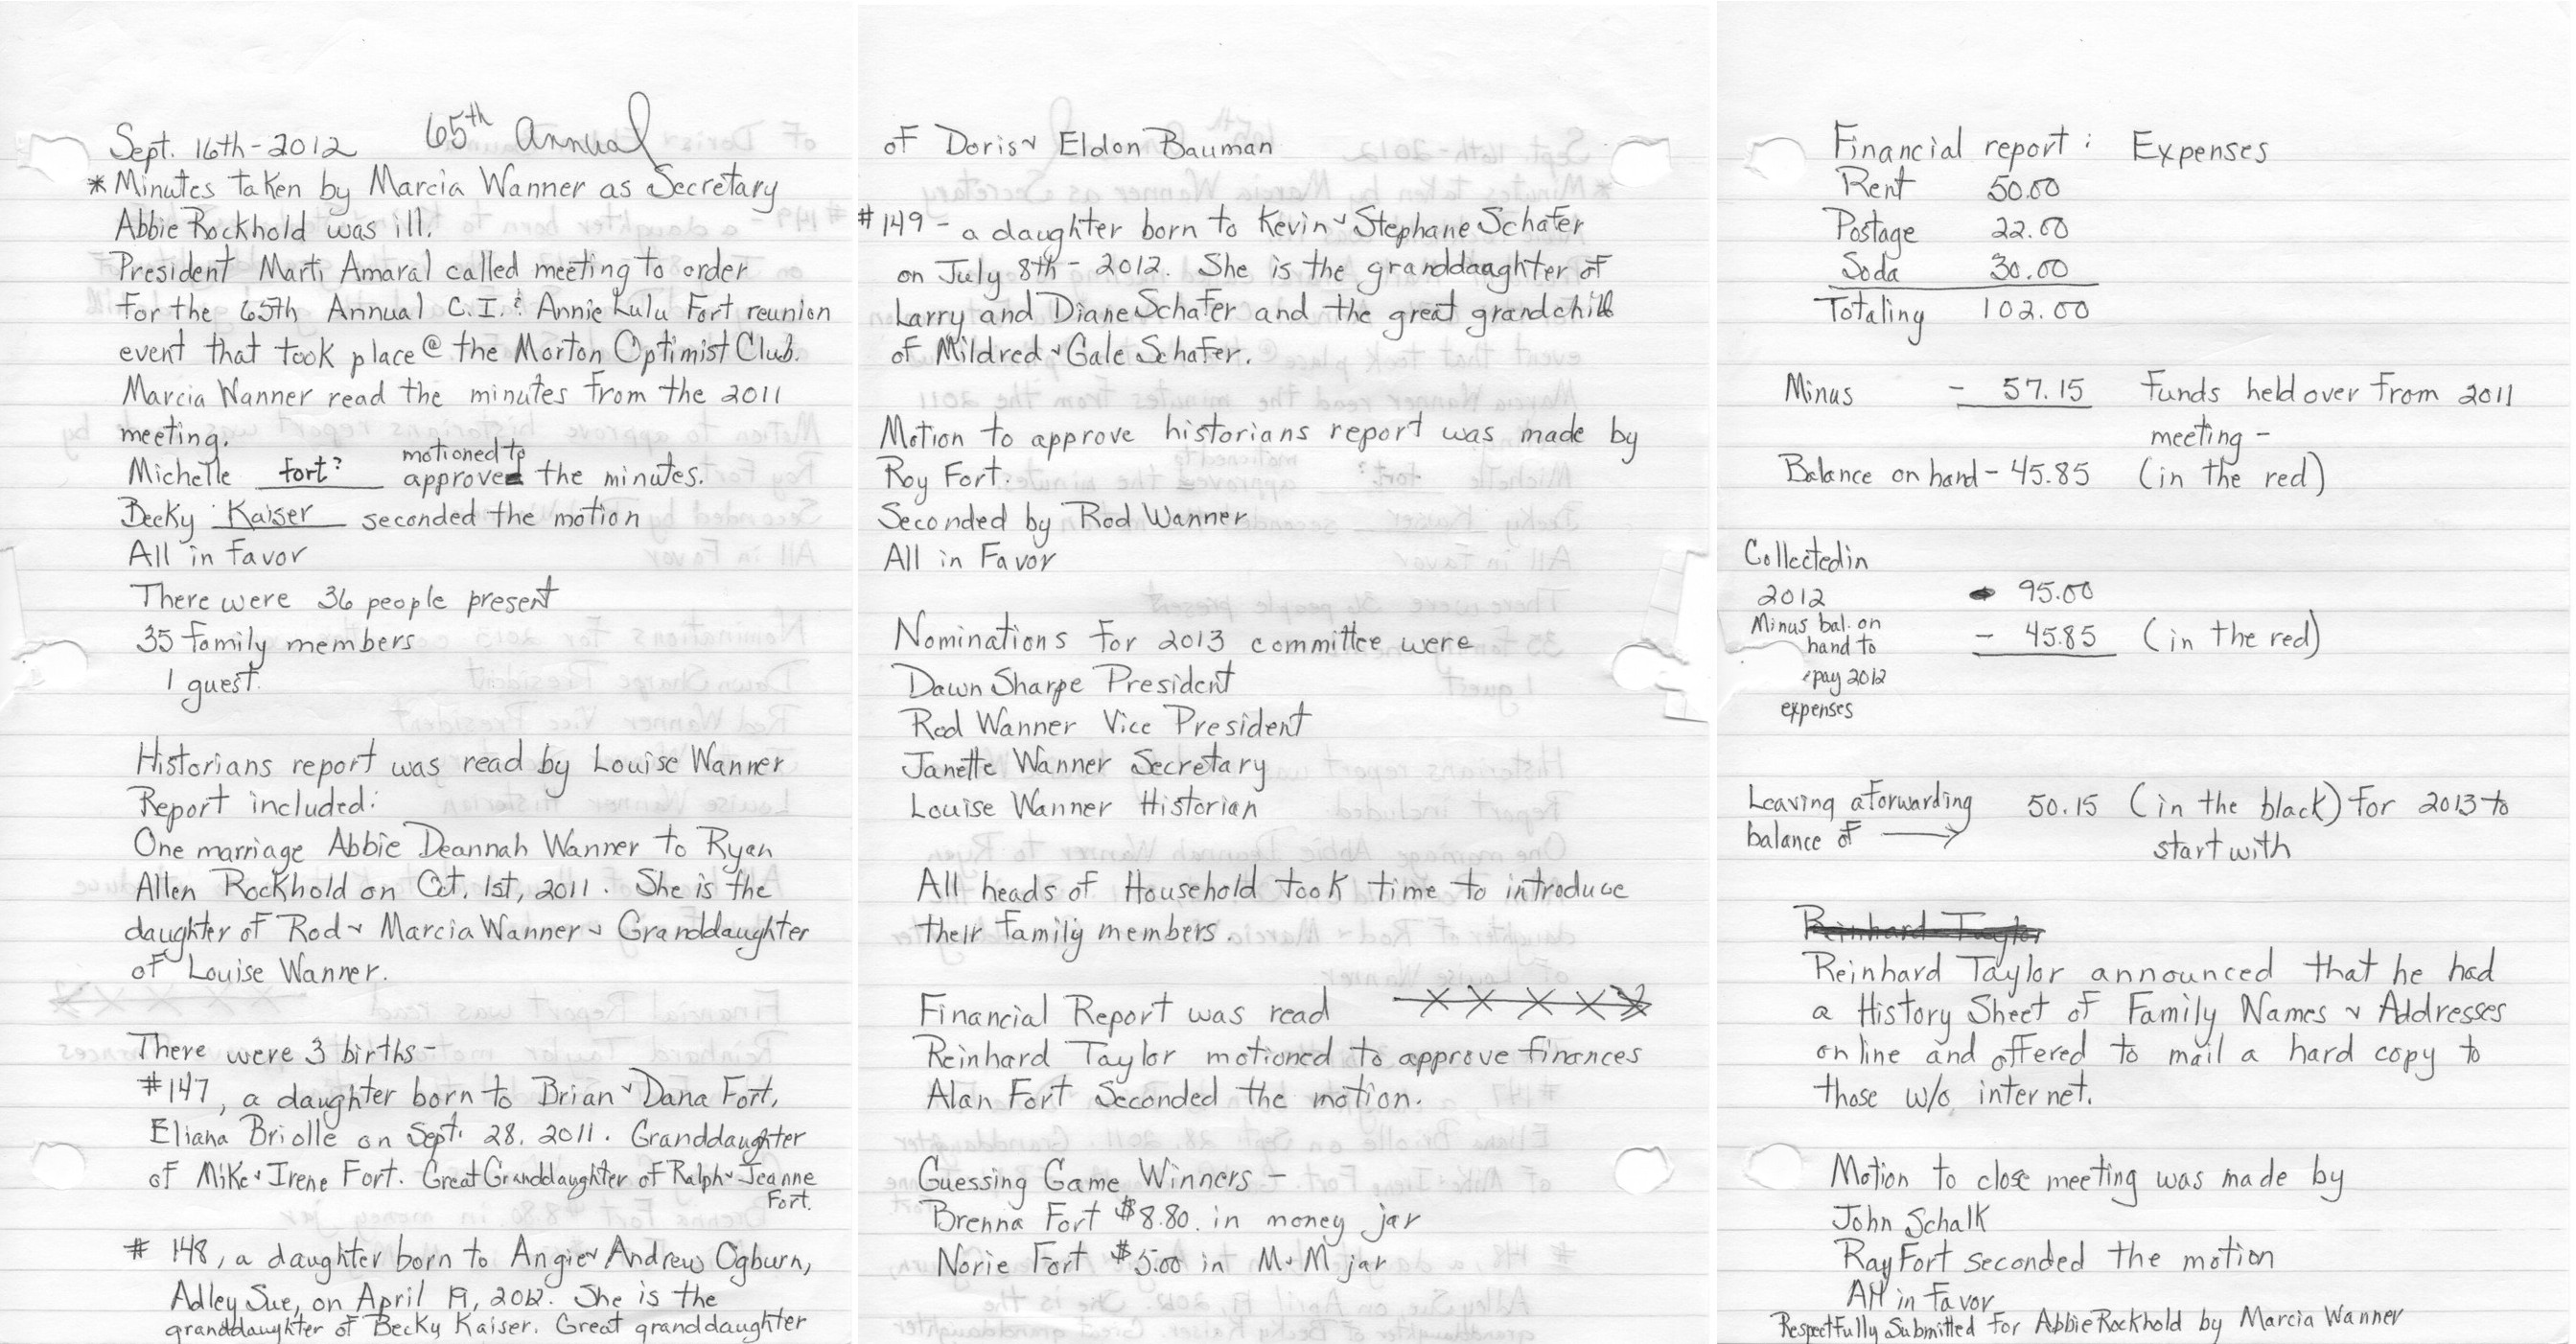 Sept. 16th-2012 65th Annual
* Minutes taken by Marcia Wanner as Secretary
Abbie Rockhold was ill.
President Marti Amaral called meeting to order
for the 65th Annual C.I. & Annie Lulu Fort reunion
event that took place @ the Morton Optimist Club.
Marcia Wanner read the minutes from the 2011
meeting.
Michelle Fort? motioned to approve the minutes.
Becky Kaiser seconded the motion
All in favor
There were 36 people present
35 family members
1 guest.
Historians report was read by Louise Wanner
Report included:
One marriage Abbie Deannah Wanner to Ryan
Allen Rockhold on Oct. 1st, 2011. She is the
daughter of Rod & Marcia Wanner & Granddaughter
of Louise Wanner.
There were 3 births-
#147, a daughter born to Brian & Dana Fort,
Eliana Briolle on Sept. 28, 2011. Granddaughter
of Mike & Irene Fort. Great Granddaughter of Ralph & Jeanne
Fort.
# 148, a daughter born to Angie & Andrew Ogburn,
Adley Sue, on April 19, 2012. She is the
granddaughter of Becky Kaiser. Great granddaughter
of Doris & Eldon Bauman
#149 - a daughter born to Kevin & Stephane Schafer
on July 8th - 2012. She is the granddaughter of
Larry and Diane Schafer and the great grandchild
of Mildred & Gale Schafer.
Motion to approve historians report was made by
Roy Fort.
Seconded by Rod Wanner
All in Favor
Nominations for 2013 committee were
Dawn Sharpe President
Rod Wanner Vice President
Janette Wanner Secretary
Louise Wanner Historian
All heads of Household took time to introduce
their family members.
Financial Report was read
Reinhard Taylor motioned to approve finances
Alan Fort Seconded the motion.
Guessing Game Winners -
Brenna Fort $8.80 in money jar
Norie Fort $5.00 in M&M jar
Financial report: Expenses
Rent 50.00
Postage 22.00
Soda 30.00
Totaling 102.00
Minus - 57.15 Funds held over from 2011
meeting -
Balance on hand - 45.85 (in the red)
Collected in
2012 95.00
Minus bal. on
hand to - 45.85 (in the red)
pay 2012
expenses
Leaving a forwarding 50.15 (in the black) for 2013 to
balance of → start with
Reinhard Taylor
Reinhard Taylor announced that he had
a History Sheet of Family Names & Addresses
online and offered to mail a hard copy to
those w/o internet.
Motion to close meeting was made by
John Schalk
Ray Fort seconded the motion
All in Favor
Respectfully Submitted for Abbie Rockhold by Marcia Wanner